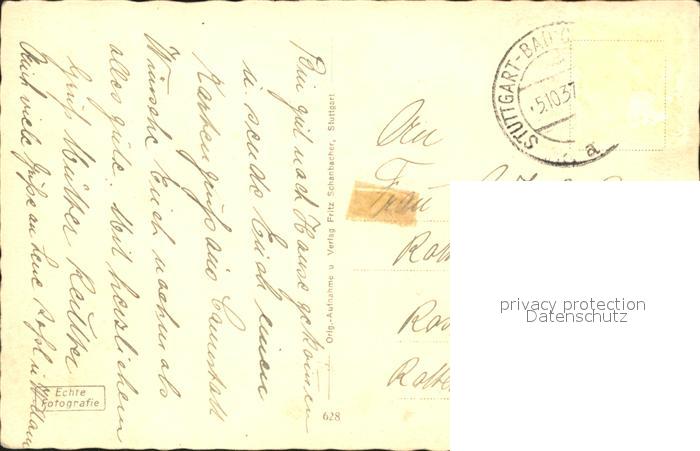 Bin gut nach Hause gekommen
u. sende Euch einen
Kartengruß aus Cannstatt
Wünsche Euch nochmals
alles gute. Mit herzlichem
Gruß Mutter
Auch viele Grüße an
Orig.-Aufnahme u Verlag Fritz Schanbacher, Stuttgart
Echte
Fotografie
628
STUTTGART-BAD C
5.10.37
a
An
Frau
privacy protection
Datenschutz